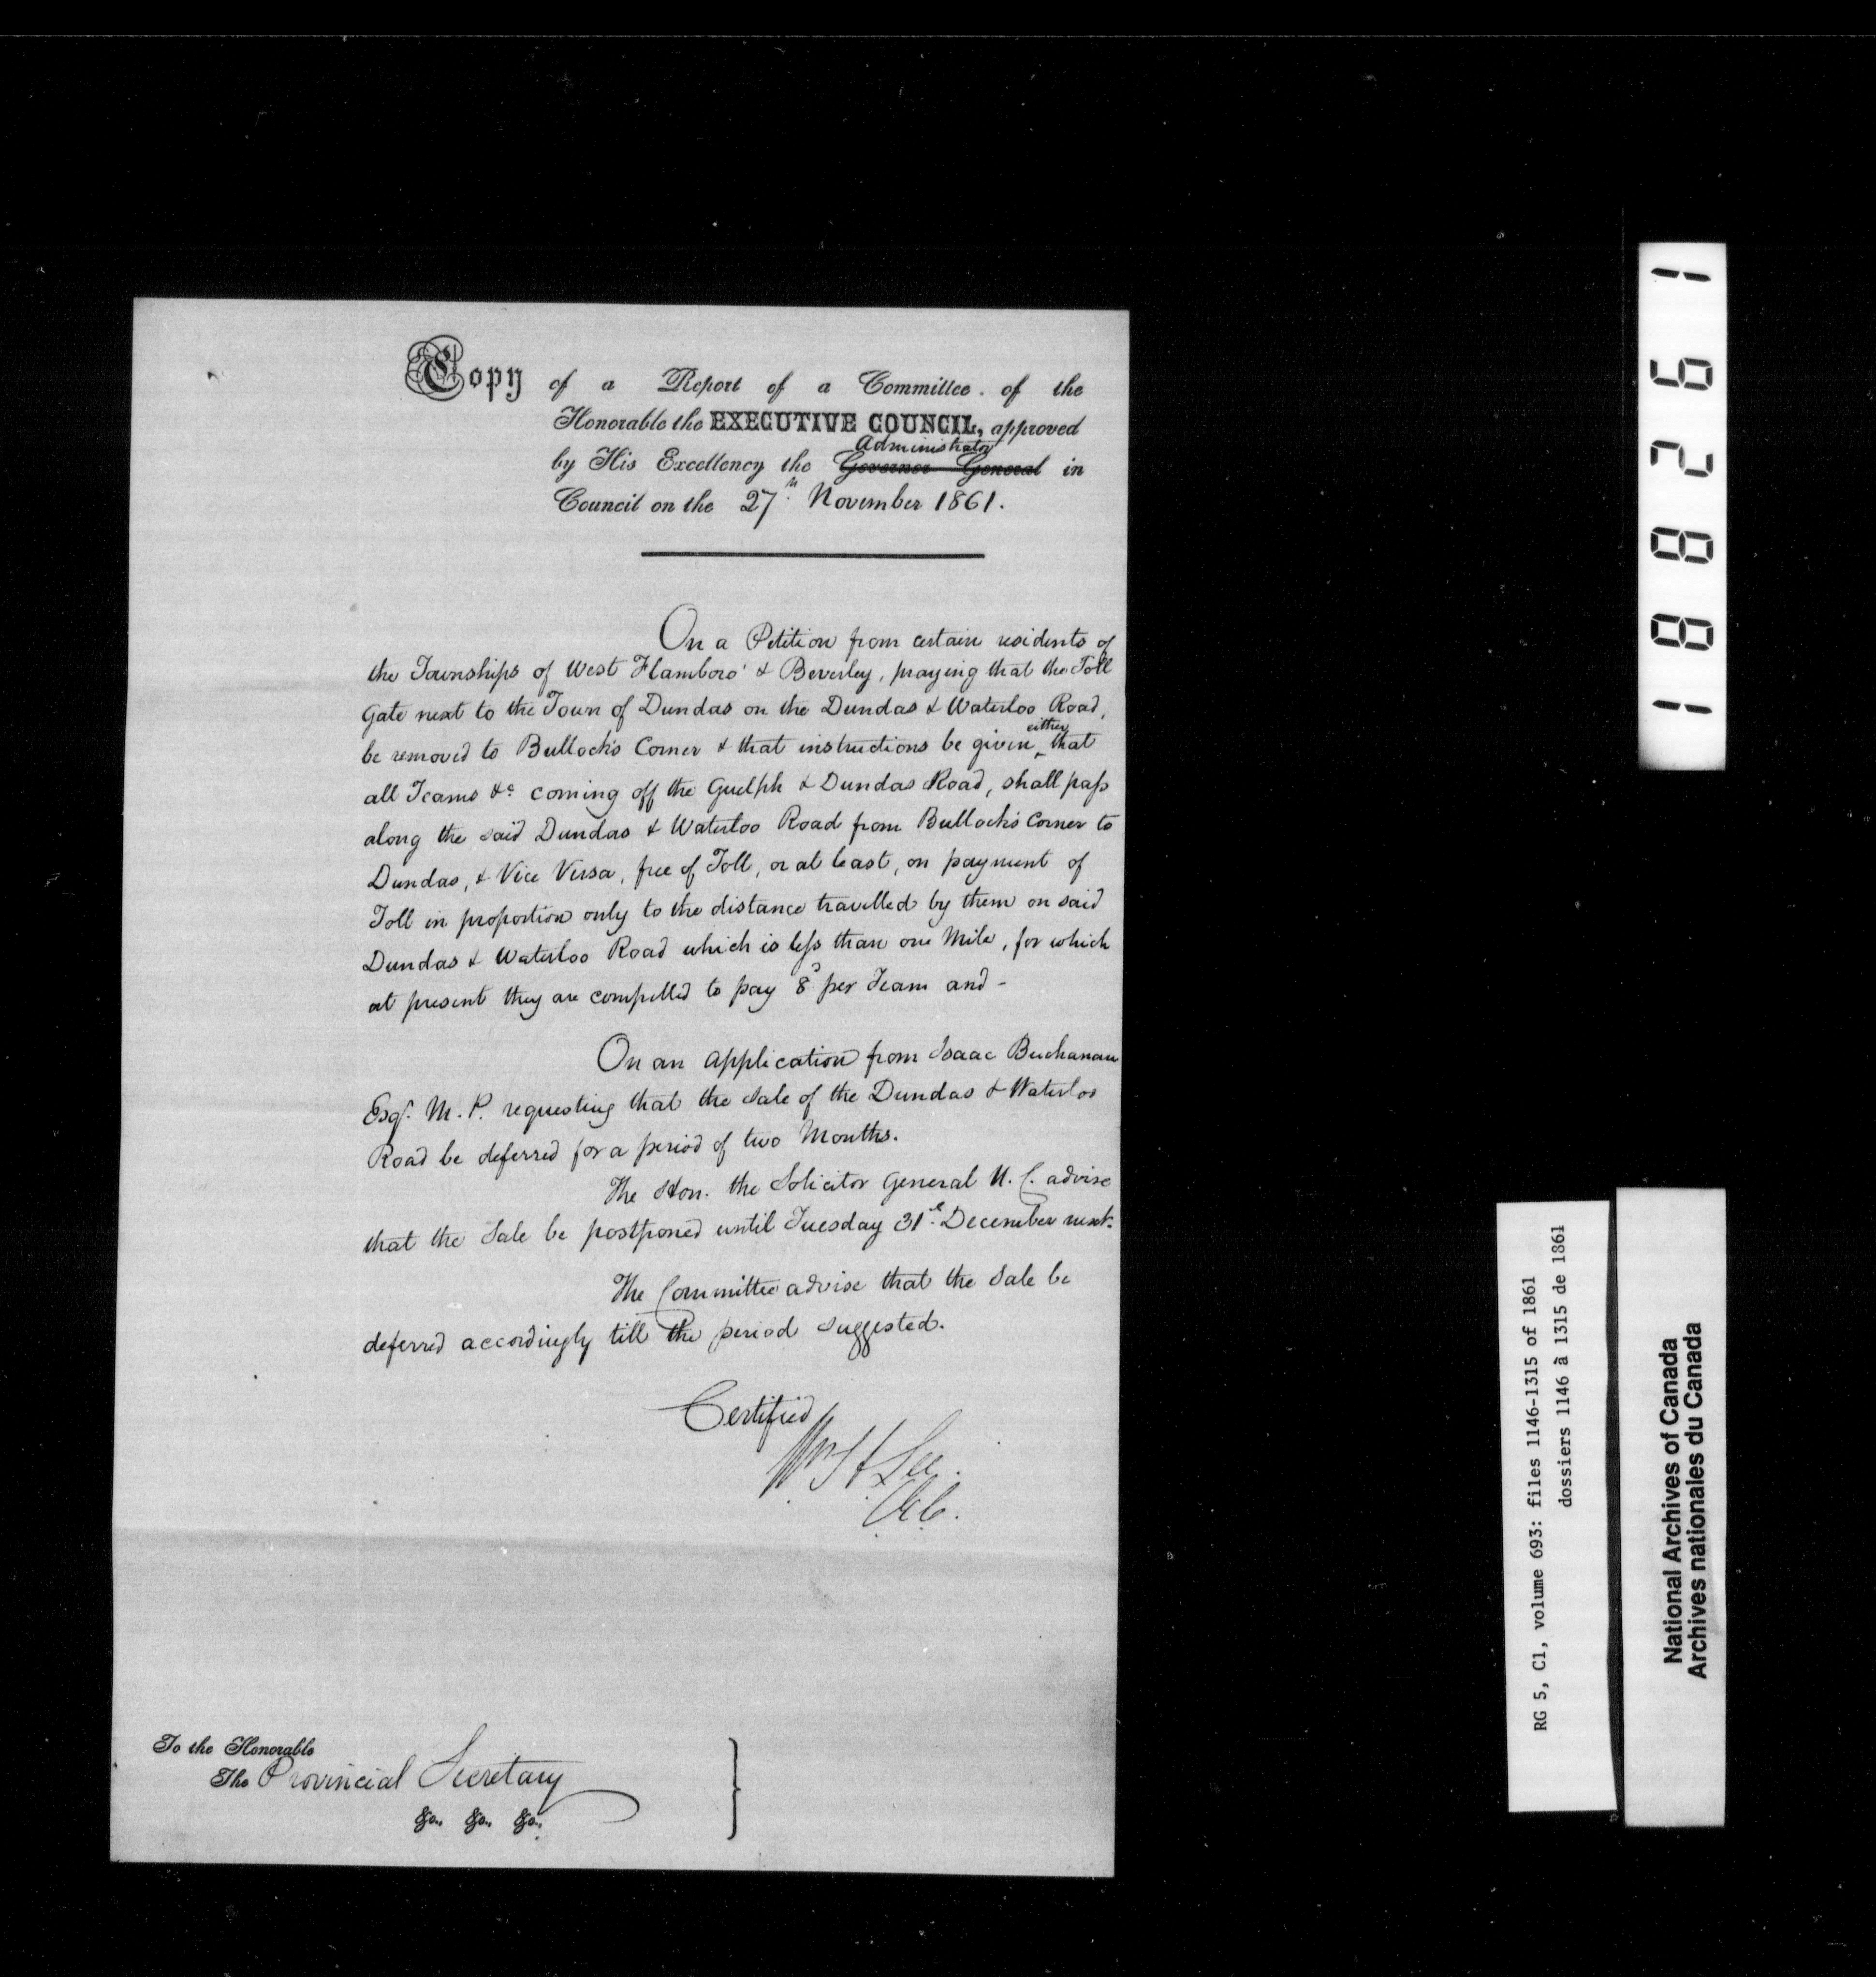 Copy of a Report of a Committee of the
Honorable the EXECUTIVE COUNCIL, approved
Administrator
by His Excellency the Governor General in
Council on the 27th November 1861.
On a Petition from certain residents of
the Townships of West Flamboro' & Beverley, praying that the Toll
Gate next to the Town of Dundas on the Dundas & Waterloo Road,
either
be removed to Bullock's Corner & that instructions be given ‸ that
all Teams &c coming off the Guelph & Dundas Road, shall pass
along the said Dundas & Waterloo Road from Bullock's Corner to
Dundas, & Vice Versa, free of Toll, or at least, on payment of
Toll in proportion only to the distance travelled by them on said
Dundas & Waterloo Road which is less than one Mile, for which
at present they are compelled to pay 8d per Team and -
On an application from Isaac Buchanan
Esqr. M. P. requesting that the Sale of the Dundas & Waterloo
Road be deferred for a period of two Months.
The Hon. the Solicitor General U. C. advise
that the Sale be postponed until Tuesday 31st December next.
The Committee advise that the Sale be
deferred accordingly till the period suggested.
Certified
Wm H Lee
C.E.C.
To the Honorable
The Provincial Secretary
&c., &c., &c.,
188261
RG 5, C1, volume 693: files 1146-1315 of 1861
dossiers 1146 à 1315 de 1861
National Archives of Canada
Archives nationales du Canada